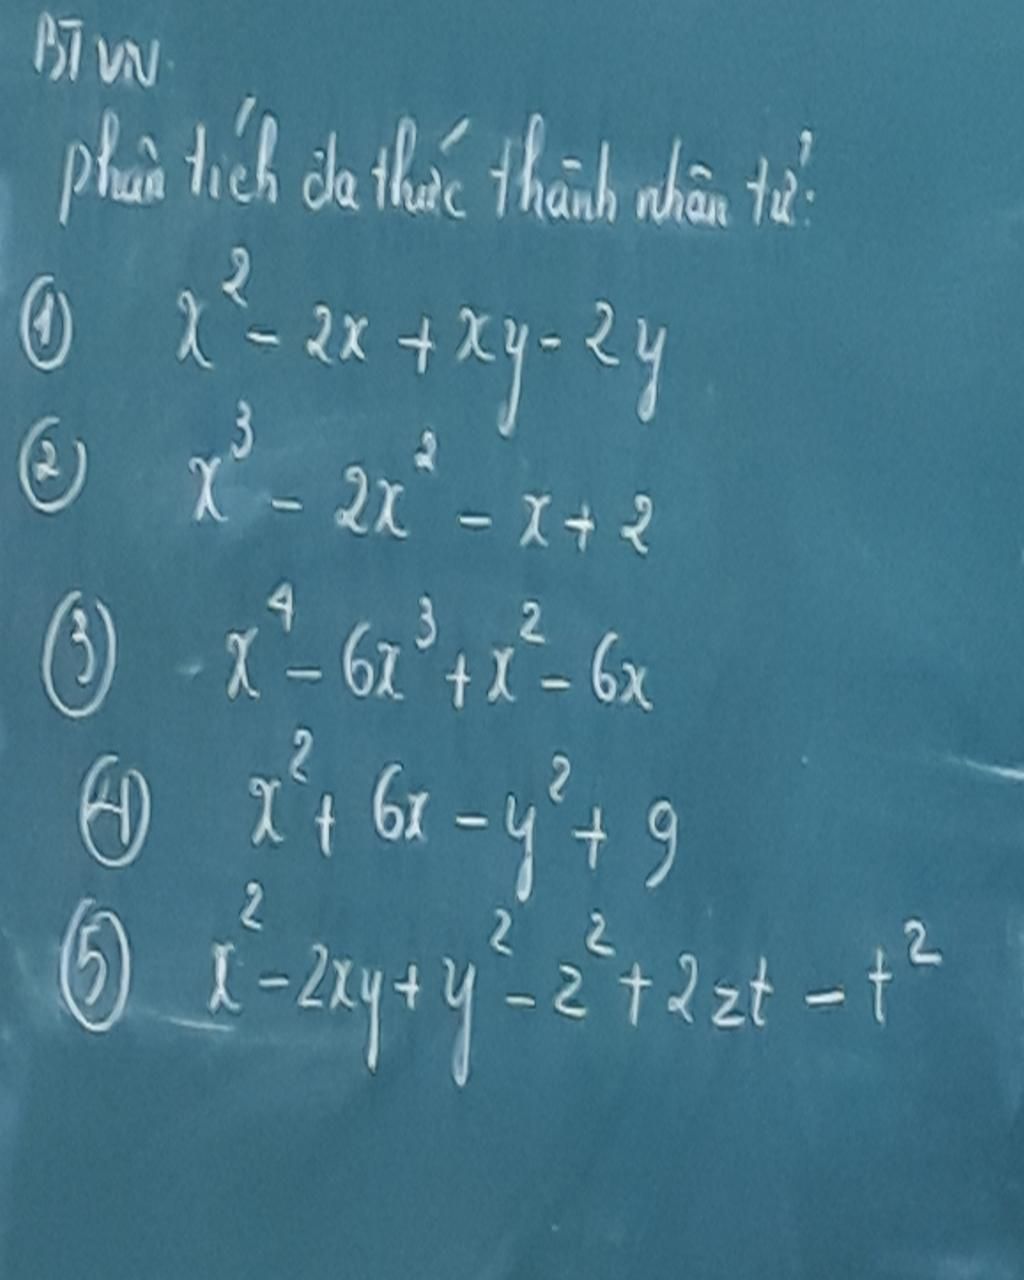 BTVN
phân tích đa thức thành nhân tử:
① x² - 2x + xy - 2y
② x³ - 2x² - x + 2
③ x⁴ - 6x³ + x² - 6x
④ x² + 6x - y² + 9
⑤ x² - 2xy + y² - z² + 2zt - t²